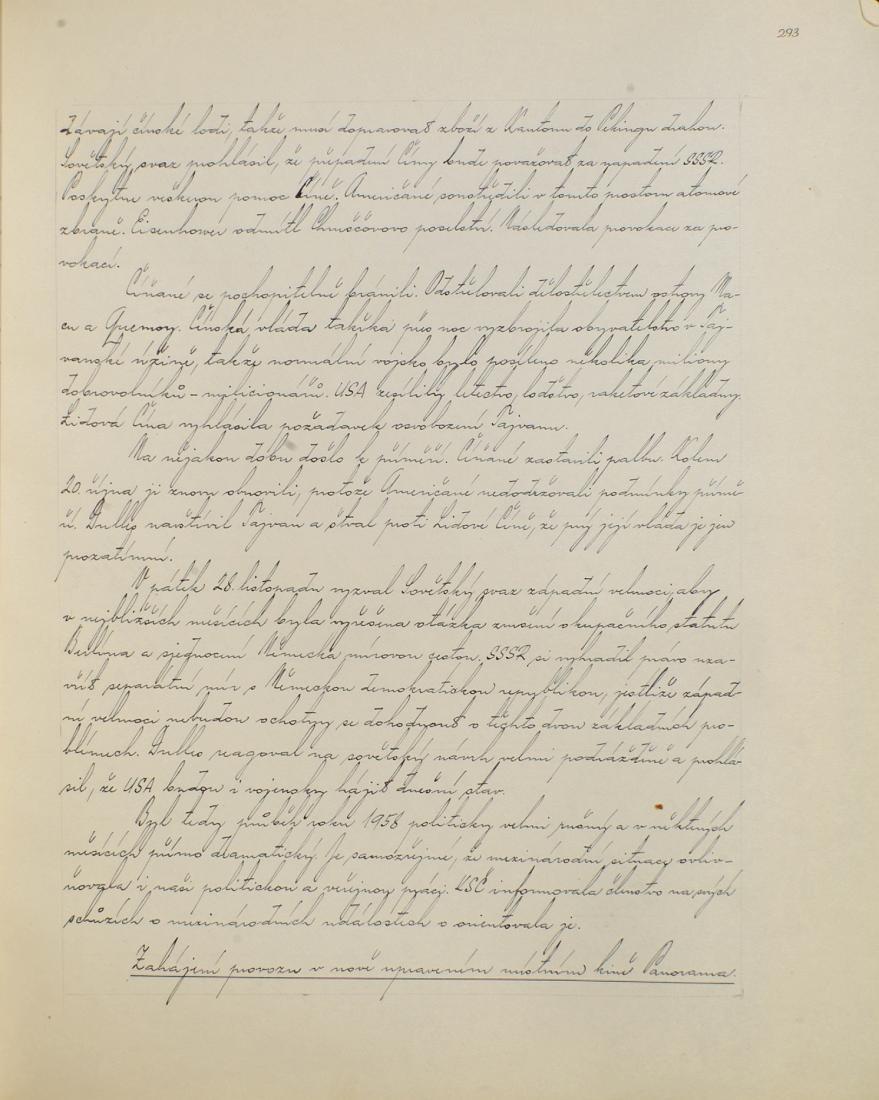 293
závají čínské lodi, takže musí dopravovat zboží z Kantonu do Pekingu drahou.
Sovětský svaz prohlásil, že přepadení Číny bude považovat za napadení SSSR.
Poskytne veškerou pomoc Číně. Američané soustředili v tomto prostoru atomové
zbraně. Eisenhower odmítl Chruščovovo poselství. Následovala provokace za pro-
vokací.
Číňané se pochopitelně bránili. Odstřelovali dělostřelectvem ostrovy Ma-
cu a Quemoy. Čínská vláda takřka přes noc vyzbrojila obyvatelstvo v Taj-
vanské úžině, takže normální vojsko bylo posíleno několika miliony
dobrovolníků - milicionářů. USA zesílily letectvo, loďstvo, raketové základny.
Lidová Čína vyhlásila požadavek osvobození Tajvanu.
Na nějakou dobu došlo k příměří. Číňané zastavili palbu. Kolem
20. října ji znovu obnovili, protože Američané nedodržovali podmínky příměř-
í. Dulles navštívil Tajvan a štval proti Lidové Číně, že prý její vláda je jen
prozatímní.
V pátek 28. listopadu vyzval Sovětský svaz západní velmoci, aby
v nejbližších měsících byla vyřešena otázka zrušení okupačního statutu
Berlína a sjednocení Německa mírovou cestou. SSSR si vyhradil právo uza-
vřít separátní mír s Německou demokratickou republikou, jestliže západ-
ní velmoci nebudou ochotny se dohodnout o těchto dvou základních pro-
blémech. Dulles reagoval na sovětský návrh velmi podrážděně a prohlá-
sil, že USA budou i vojensky hájit dnešní stav.
Byl tedy průběh roku 1958 politicky velmi rušný a v některých
měsících přímo dramatický. Je samozřejmé, že mezinárodní situace ovliv-
ňovala i naši politickou a veřejnou práci. KSČ informovala členstvo na svých
schůzích o mezinárodních událostech a orientovala je.
Zahájení provozu v nově upraveném místním kině Panorama.